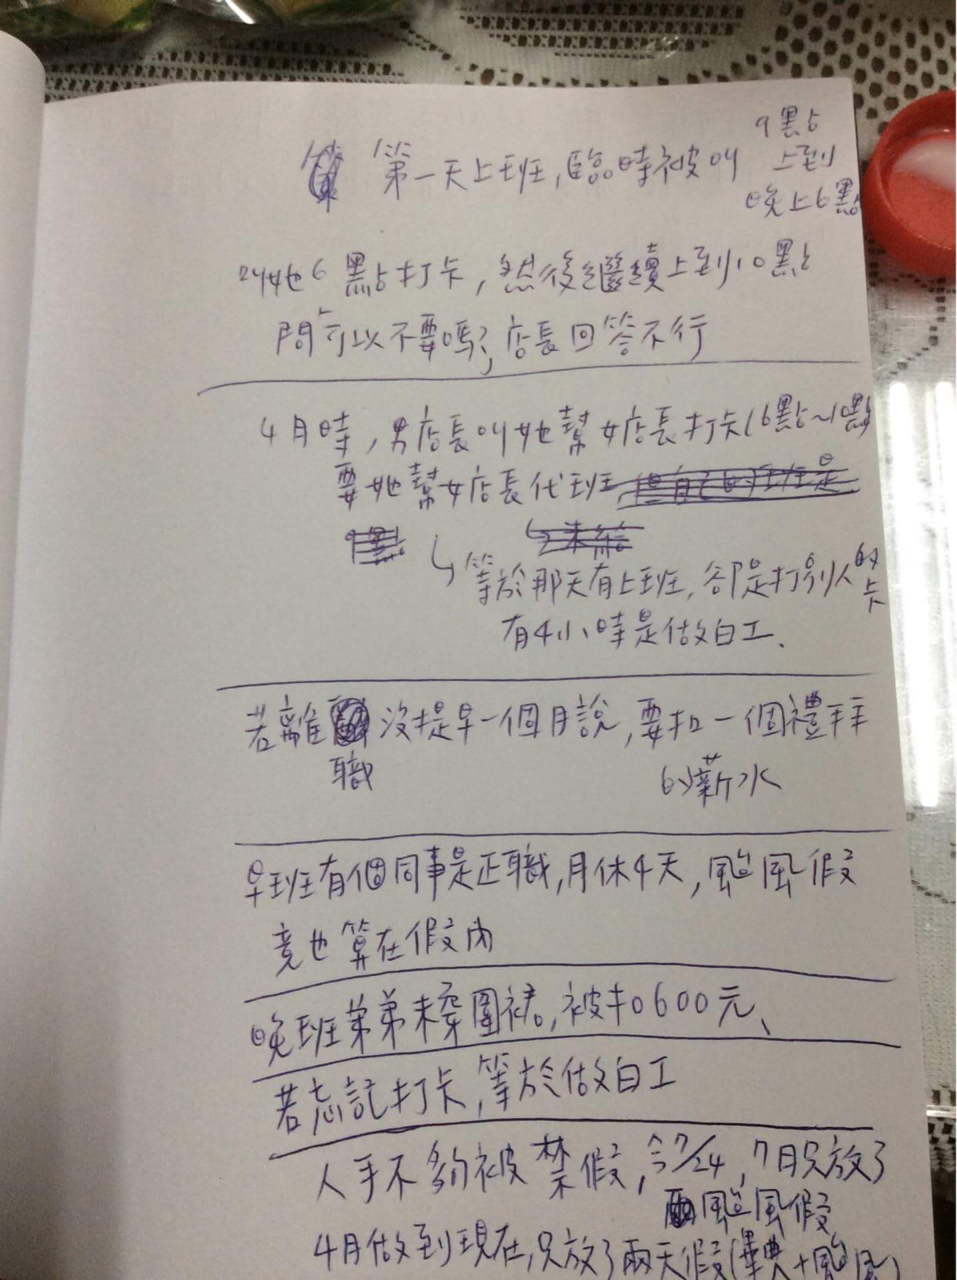 第一天上班,臨時被叫 9點
上到
晚上6點
叫她6點打卡,然後繼續上到10點
問可以不要嗎?,店長回答不行
4月時,男店長叫她幫女店長打卡(6點~10點)
要她幫女店長代班
↳等於那天有上班,卻是打別人的卡
有4小時是做白工、
若離職沒提早一個月說,要扣一個禮拜
的薪水
早班有個同事是正職,月休4天,颱風假
竟也算在假內
晚班弟弟未穿圍裙,被扣600元、
若忘記打卡,等於做白工
人手不夠被禁假,今7/24,7月只放了
颱風假
4月做到現在,只放了兩天假(畢典+颱風)